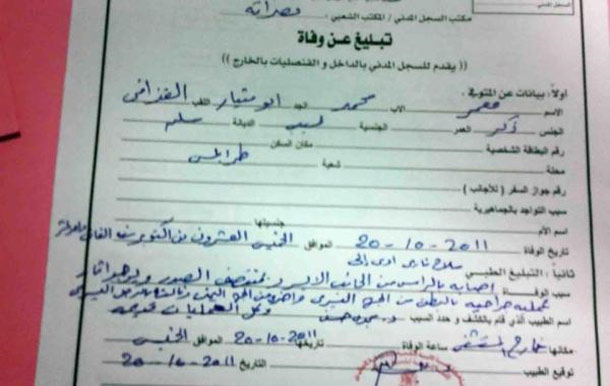 مكتب السجل المدني / المكتب الشعبي : مصراته
تبليغ عن وفاة
(( يقدم للسجل المدني بالداخل و القنصليات بالخارج ))
أولاً : بيانات عن المتوفي
الاسم معمر الأب محمد الجد ابومنيار اللقب القذافي
الجنس ذكر العمر الجنسية ليبي الديانة مسلم
رقم البطاقة الشخصية مكان السكن
محلة شعبية طرابلس
رقم جواز السفر ( للأجانب )
سبب التواجد بالجماهيرية
اسم الأم جنسيتها
تاريخ الوفاة 20-10-2011 الموافق الخميس العشرون من اكتوبر
ثانياً : التبليغ الطبي سلاح ناري ادى إلى
سبب الوفاة اصابه بالراس من الجانب الايسر و بمنتصف الصدر
عملية جراحية بالبطن من
اسم الطبيب الذي قام بالكشف و حدد السبب
مكانها خارج المستشفى ساعة الوفاة تاريخها 20-10-2011 الموافق الخميس
توقيع الطبيب التاريخ 20-10-2011